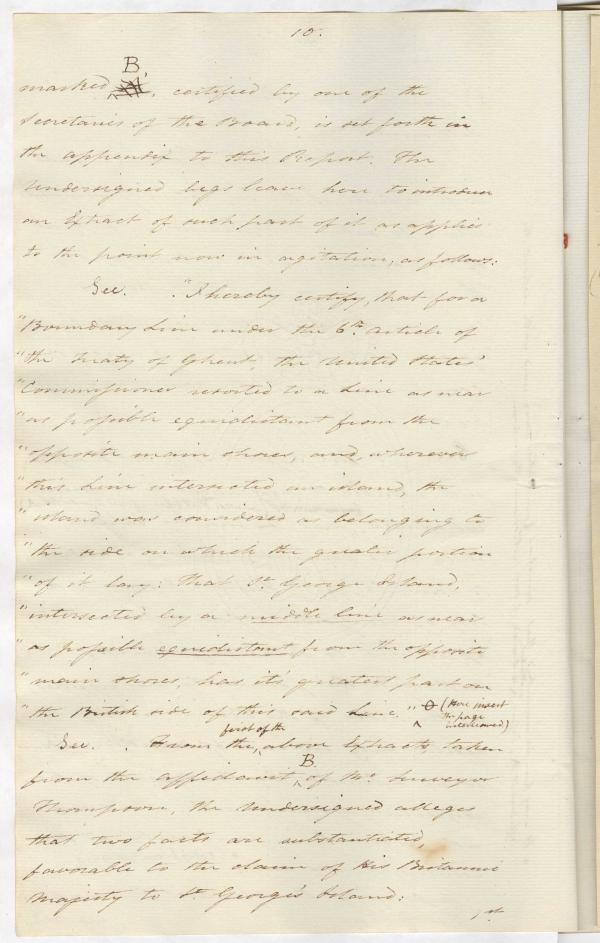 10.
B,
marked, certified by one of the
Secretaries of the Board, is set forth in
the appendix to this Report. The
Undersigned begs leave here to introduce
an Extract of such part of it as applies
to the point now in agitation, as follows:
Sec. "I hereby certify, that for a
"Boundary Line under the 6th. article of
"the treaty of Ghent, the United States'
"Commissioner resorted to a Line as near
"as possible equidistant from the
"opposite main shores, and, wherever
"this Line intersected an island, the
"island was considered as belonging to
"the side on which the greater portion
"of it lay: that St. George Island,
"intersected by a middle line as near
"as possible equidistant from the opposite
"main shores, has its greatest part on
"the British side of this said Line." (Here insert
the page
interleaved)
first of the
Sec. From the, above Extracts, taken
B
from the affidavit, of Mr. Surveyor
Thompson, the Undersigned alleges
that two facts are substantiated,
favorable to the claim of His Britannic
Majesty to St. George's Island:
1st.